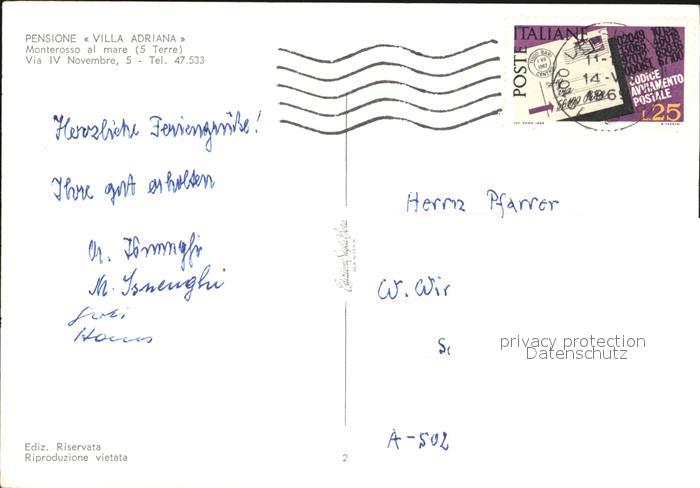 PENSIONE « VILLA ADRIANA »
Monterosso al mare (5 Terre)
Via IV Novembre, 5 - Tel. 47.533
POSTE ITALIANE
CODICE
AVVIAMENTO
POSTALE
L.25
Herzliche Feriengrüße!
Ihre gut erholten
M. Isnenghi
Hannes
Herrn Pfarrer
W. Wir
S
A-502
privacy protection
Datenschutz
Ediz. Riservata
Riproduzione vietata
2